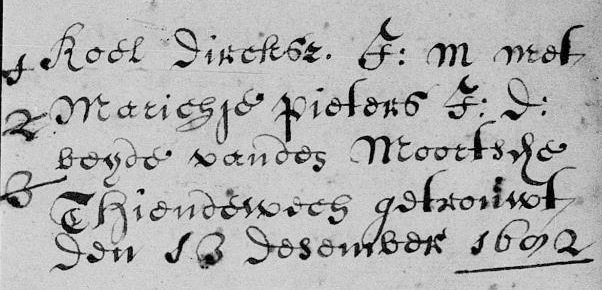 1 Roel Dircksz. J: m met
2 Marichje pieters J: d:
beyde vandes Moortsche
3 Thiendewech getrouwt
den 13 desember 1692